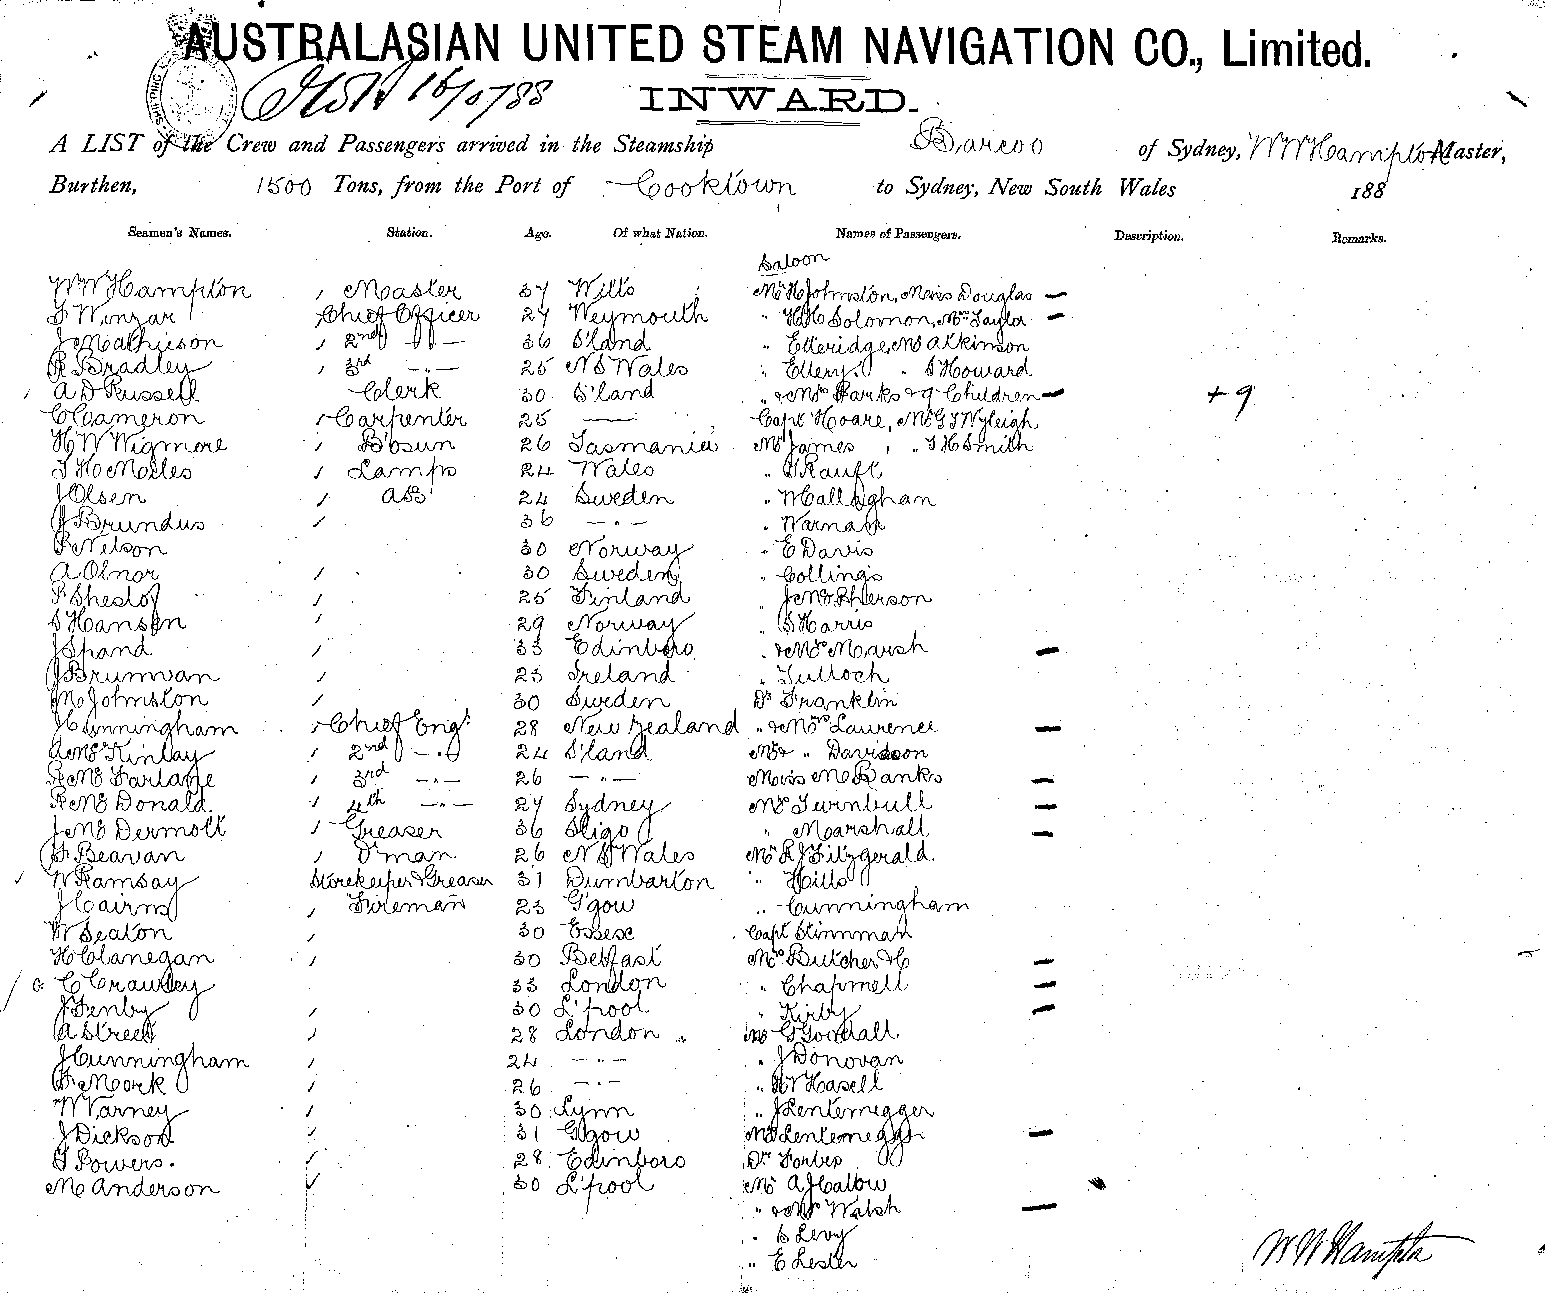 AUSTRALASIAN UNITED STEAM NAVIGATION CO., Limited.
16/10/88
INWARD.
A LIST of the Crew and Passengers arrived in the Steamship Barcoo of Sydney, W W Hampton Master,
Burthen, 1500 Tons, from the Port of Cooktown to Sydney, New South Wales 188
Seamen's Names. Station. Age. Of what Nation. Names of Passengers. Description. Remarks.
Saloon
W W Hampton Master 37 Wilts Mr H Johnston, Miss Douglas —
F Winzar Chief Officer 27 Weymouth " H H Solomon, Mrs Taylor —
J Mathieson 2nd -"- 36 S'land " Etteridge, Mr Atkinson
R Bradley 3rd -"- 25 N S Wales " Ellery " S Howard
A D Russell Clerk 30 S'land " & Mrs Parks & 9 Children — + 9
C Cameron Carpenter 25 — Capt Hoare, Mr G F Wyleigh
H W Wigmore B'osun 26 Tasmania Mr James, " F H Smith
T H Miles Lamps 24 Wales "
J Olsen AB 24 Sweden " W Callaghan
J Brundus 36 -"- "
P Nelson 30 Norway " E Davis
A Olnor 30 Sweden " Collings
P 25 Finland " J McPherson
S Hansen 29 Norway " S Harris
J Spand 33 Edinboro " & Mrs Marsh —
J Brunwan 23 Ireland " Tulloch
M Johnston 30 Sweden Dr Franklin
J Cunningham Chief Engr 28 New Zealand " & Mrs Laurence —
A McKinlay 2nd -"- 24 S'land Mr & " Davidson
R McFarlane 3rd -"- 26 -"- Miss M Banks —
R McDonald 4th -"- 27 Sydney Mrs Turnbull —
J McDermott Greaser 36 Sligo " Marshall —
F Beavan D'man 26 N S Wales Mr R J Fitzgerald.
W Ramsay Storekeeper & Greaser 31 Dumbarton " Hills
J Cairns Fireman 23 G'gow " Cunningham
W Seaton 30 Essex Capt
H Clanegan 30 Belfast Mrs Butcher & C —
C Crawley 33 London " Chapmell —
J Fenby 30 L'pool " Kirby —
A Street 28 London Mr G Goodall
J Cunningham 24 -"- " J Donovan
F Mork 26 -"- " W Hasell
W Varney 30 Lynn " J Lentemegger
J Dickson 31 G'gow Mrs Lentemegger —
T Powers. 28 Edinboro Dr Forbes
M Anderson 30 L'pool Mr A J Catow
" & Mrs Walsh —
" S Levy
" E Lester
W W Hampton